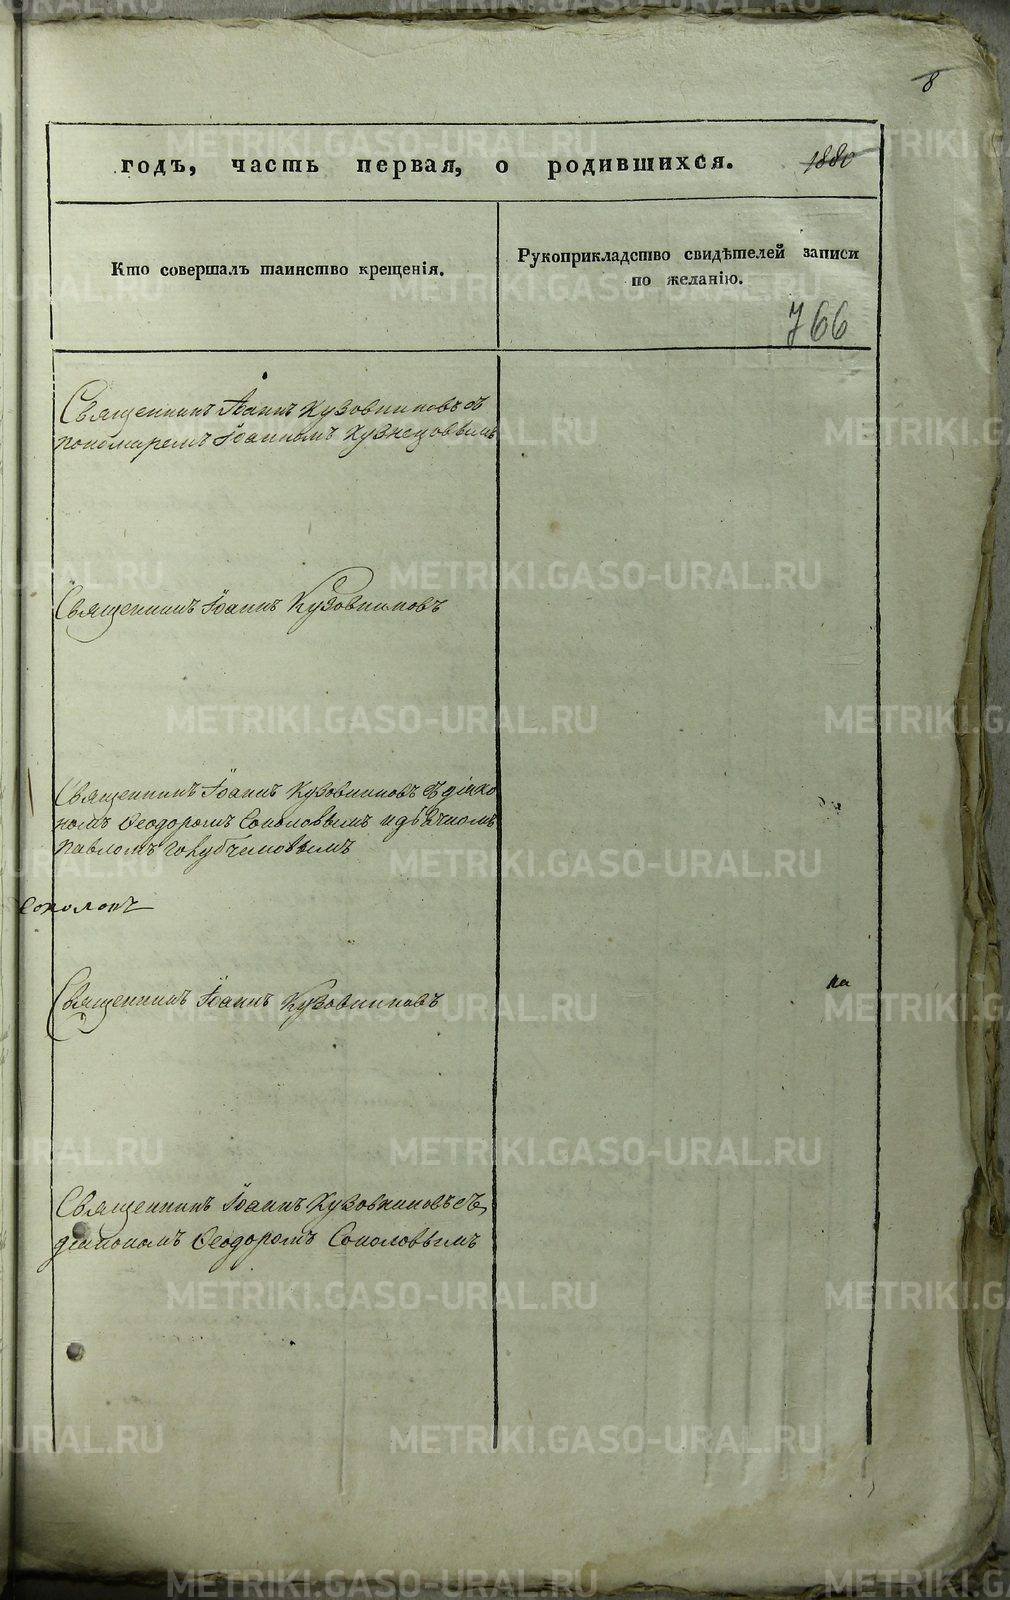 8
годъ, часть первая, о родившихся. 1880
Кто совершалъ таинство крещенія.
Рукоприкладство свидѣтелей записи
по желанію.
766
Священникъ Іоаннъ Кузовниковъ съ
пономаремъ Іоанномъ Кузнецоввымъ
Священникъ Іоаннъ Кузовниковъ
Священникъ Іоаннъ Кузовниковъ съ діако
номъ Ѳеодоромъ Соколоввымъ и дьячкомъ
Павломъ
Соколовъ
на
Священникъ Іоаннъ Кузовниковъ
Священникъ Іоаннъ Кузовниковъ съ
діакономъ Ѳеодоромъ Соколоввымъ
METRIKI.GASO-URAL.RU